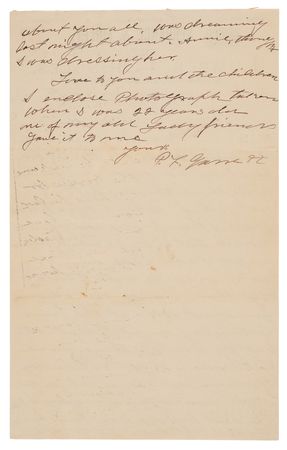 about you all, was dreaming
last night about Annie, thought
I was dressing her.
Love to you and the children
I enclose Photograph taken
when I was 22 years old
one of my old Lady friends
gave it to me
yours
P. F. Garrett